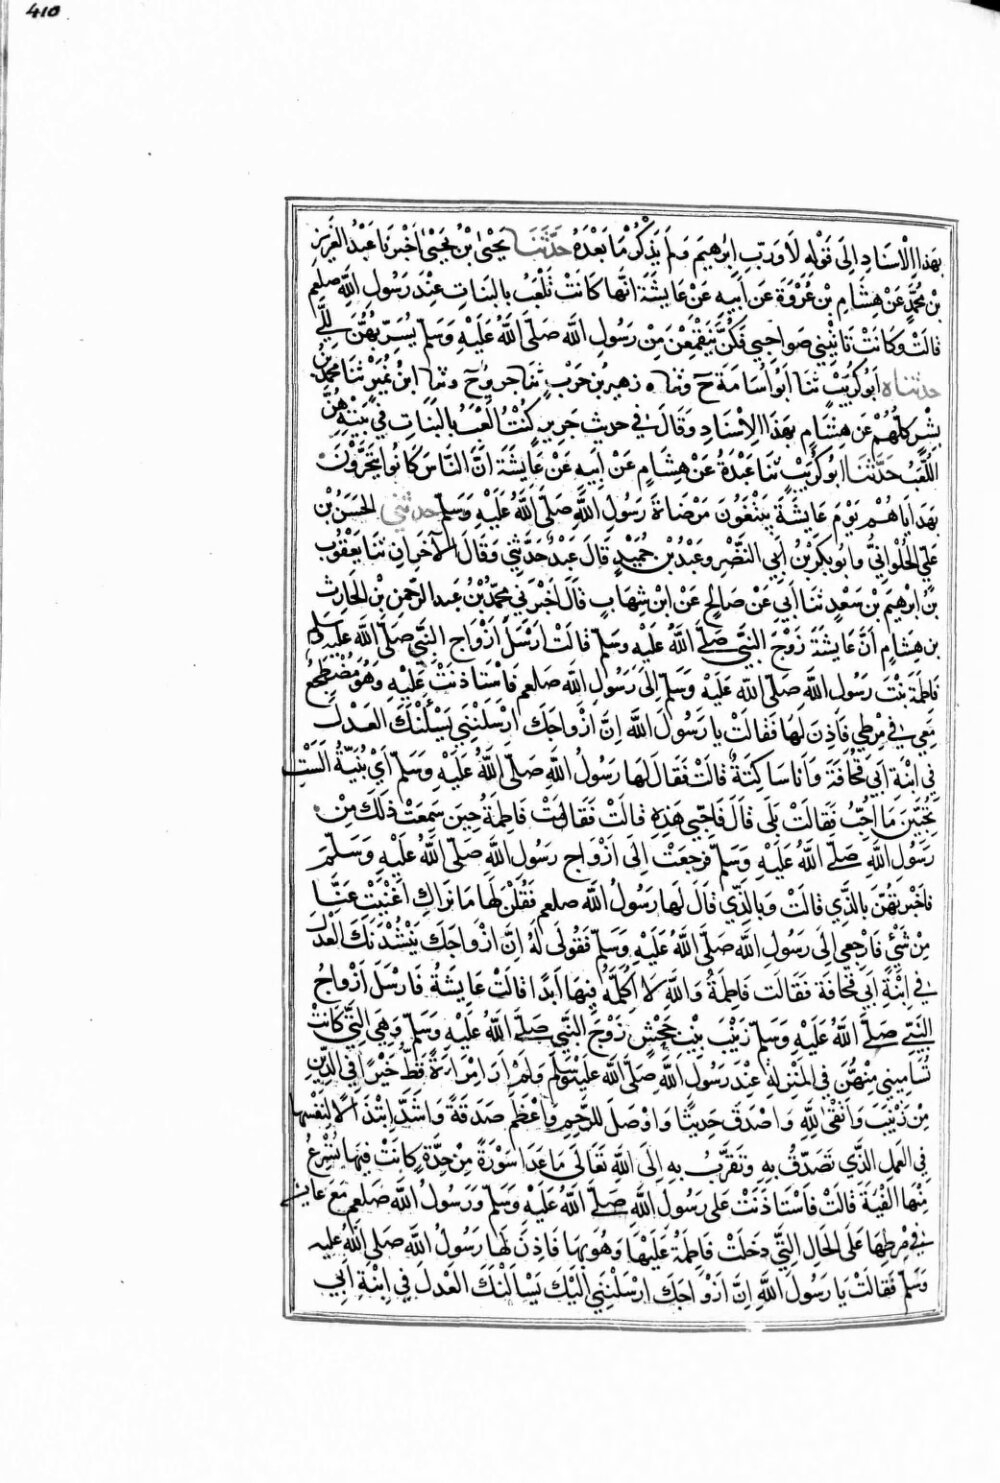 410
بهَذا الْاِسْنَادِ اِلَى قَوْلِهِ لَا وَرَبِّ اِبْرهِيمَ وَلَمْ يَذْكُرْ مَا بَعْدَهُ حَدَّثَنَا يَحْيَى بْنُ يَحْيَىٰ اَخْبَرنَا عَبْدُ الْعَزِيز
بْن مُحَمَّدٍ عَنْ هِشَامِ بْنِ عُرْوَةَ عَنْ اَبِيهِ عَنْ عَايِشَةَ انَّها كَانَتْ تَلْعَبُ بِالبَنَاتِ عِنْدَ رَسُولِ اللَّهِ صلعم
قالَتْ وَكَانَتْ تَاتِيْنِي صَوَاحِبِي فَكُنَّ يَنْقَمِعْنَ مِنْ رَسُولِ اللَّه صَلَّى اللَّهُ عَلَيْهِ وَسَلَّم يُسَرِّبُهُنَّ اِلَيَّ
حدثناه اَبُو كُرَيْبٍ ثَنا اَبُو اُسَامَةَ حَ وثناه زهير بْن حَرْبٍ ثنا جرير ح وثنا ابْن نُمَيْرٍ ثنا محمد بْن
بِشْرٍ كلُّهُمْ عَن هِشَامٍ بهَذَا الاِسْنَادِ وَقَالَ فِي حديث جَرِيرٍ كُنْتُ اَلْعَبُ بِالبَنَاتِ في بَيْتِهِ وهُنَّ
اللُّعَبُ حَدَّثَنَا ابُو كُرَيْبٍ ثَنا عَبْدَةُ عَنْ هِشَامٍ عَنْ اَبِيهِ عَنْ عَايِشَةَ اَنَّ النَّاسَ كَانُوا يَتَحَرَّوْنَ
بهَدَايَاهُمْ يَوْمَ عَايِشَةَ يَبْتَغُونَ مَرْضَاةَ رَسُولِ اللَّهِ صَلَّى اللَّهُ عَلَيْهِ وَسَلَّم حدثني الحَسَنُ بْن
عَلِيٍّ الحُلْوَانِيُّ وابُو بَكْرِ بْنُ ابِي النَّضْرِ وعَبْدُ بْن حُمَيْدٍ قَالَ عَبْدٌ حَدَّثَنِي وَقَالَ الآخَرَانِ ثنا يَعْقُوبُ
بْنُ ابْرهِيمَ بْن سَعِدٍ ثنا اَبِي عَنْ صَالِحٍ عَنْ ابْنِ شِهَابٍ قالَ اَخْبَرَنِي مُحَمَّدُ بْنُ عَبْدِ الرَّحْمنِ بْنِ الحَارِث
بن هِشَامٍ اَنَّ عَايشَةَ زَوْجَ النَّبِيِّ صَلَّى اللَّهُ عَلَيْهِ وَسَلَّم قَالَتْ اَرْسَلَ اَزْوَاج النَّبِيِّ صَلَّى اللَّه عَلَيْهِ وَسَلَّم
فَاطِمَةَ بِنْتَ رَسُولِ اللَّهِ صَلَّى اللَّه عَلَيْهِ وَسَلَّم اِلَى رَسُولِ اللَّهِ صلعم فَاسْتَاذَنَتْ عَلَيْهِ وَهُوَ مُضْطَجِعٌ
مَعِي فِي مِرْطِي فَاَذِنَ لَهَا فَقَالَتْ يا رَسُولَ اللَّه اِنَّ ازْوَاجَكَ ارْسَلْنَنِي يَسْئَلْنَكَ العَدْلَ
فِي ابْنَةِ اَبِي قُحَافَةَ وَاَنا سَاكِتَةٌ قالَتْ فَقَالَ لَهَا رَسُولُ اللَّهِ صَلَّى اللَّهُ عَلَيْهِ وَسَلَّم اَيْ بُنَيَّةُ اَلَسْتِ
تُحِبِّينَ مَا اُحِبُّ فَقَالَتْ بَلَى قَالَ فَاَحِبِّي هَذِهِ قالَتْ فَقَامَتْ فَاطِمَةُ حِينَ سَمِعَتْ ذَلكَ مِنْ
رَسُولِ اللَّهِ صَلَّى اللَّهُ عَلَيْهِ وَسَلَّم فَرَجَعَتْ اِلَى اَزْوَاجِ رَسُولِ اللَّهِ صَلَّى اللَّهُ عَلَيْهِ وَسَلَّمَ
فاَخْبَرتْهُنَّ بِالَّذِي قالَتْ وَبِالَّذِي قَالَ لَها رَسُولُ اللَّه صلعم فَقُلْنَ لَهَا مَا نَرَاكِ اَغْنَيْتِ عَنَّا
مِنْ شَيْءٍ فَارْجِعِي اِلَى رَسُولِ اللَّه صَلَّى اللَّهُ عَلَيْهِ وَسَلَّم فَقُولِى لَهُ اِنَّ ازْوَاجَكَ يَنْشُدْنَكَ العَدْلَ
فِي ابْنَةِ ابِي قُحَافَةَ فَقَالَت فَاطِمَةُ وَاللَّه لَا اُكَلِّمُهُ فِيهَا اَبَدًا قَالَتْ عَايِشَةُ فَاَرْسَلَ اَزْوَاجُ
النَّبِيِّ صَلَّى اللَّهُ عَلَيْهِ وَسَلَّم زَيْنَبَ بِنْتَ جَحْشٍ زَوْجَ النَّبِيِّ صَلَّى اللَّهُ عَلَيْهِ وَسَلَّم وَهِيَ الَّتِي كَانَتْ
تُسَامِينِي مِنْهُنَّ فِي المَنْزِلَةِ عِنْدَ رَسُولِ اللَّهِ صَلَّى اللَّه عَلَيْهِ وَسَلَّم وَلَمْ اَرَ امْرَاَةً قَطُّ خَيْرًا فِي الدِّينِ
مِنْ زَيْنَبَ وَاَتْقَى لِلَّهِ وَاَصْدَقَ حَدِيثًا وَاَوْصَلَ لِلرَّحِمِ وَاَعْظَمَ صَدَقَةً وَاَشَدَّ ابْتِذَالًا لِنَفْسِهَا
فِي العَمَلِ الَّذِي تَصَدَّقُ بِهِ وَتَقَرَّبُ بِهِ اِلَى اللَّهِ تَعَالَى مَا عَدَا سَوْرَةً مِنْ حِدَّةٍ كَانَتْ فِيهَا تُسْرِعُ
مِنْهَا الْفَيْئَةَ قالَتْ فَاسْتَاذَنَتْ عَلَى رَسُولِ اللَّهِ صَلَّى اللَّهُ عَلَيْهِ وَسَلَّم وَرَسُولُ اللَّه صَلعم مَعَ عايشة
فِي مِرْطِهَا عَلَى الحَالِ الَّتِي دخَلَتْ فَاطِمَةُ عَلَيْهَا وَهُوَ بهَا فَاَذِنَ لَهَا رَسُولُ اللَّهِ صَلَّى اللَّهُ عَلَيه
وَسَلَّم فَقَالَتْ يَا رَسُولَ اللَّهِ اِنَّ اَزْوَاجَكَ اَرْسَلْنَنِي اِلَيْكَ يَسْاَلْنَكَ العَدْلَ فِي ابْنَةِ اَبِي